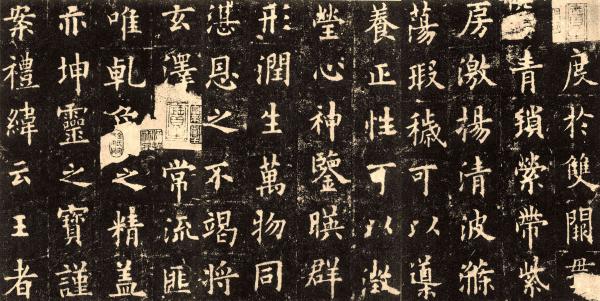 度於雙闕
青瑣縈帶紫
房激揚清波滌
蕩瑕穢可以導
養正性可以澂
瑩心神鑒暎群
形潤生萬物同
湛恩之不竭將
玄澤常流匪
唯乹之精盖
亦坤靈之寶謹
案禮緯云王者